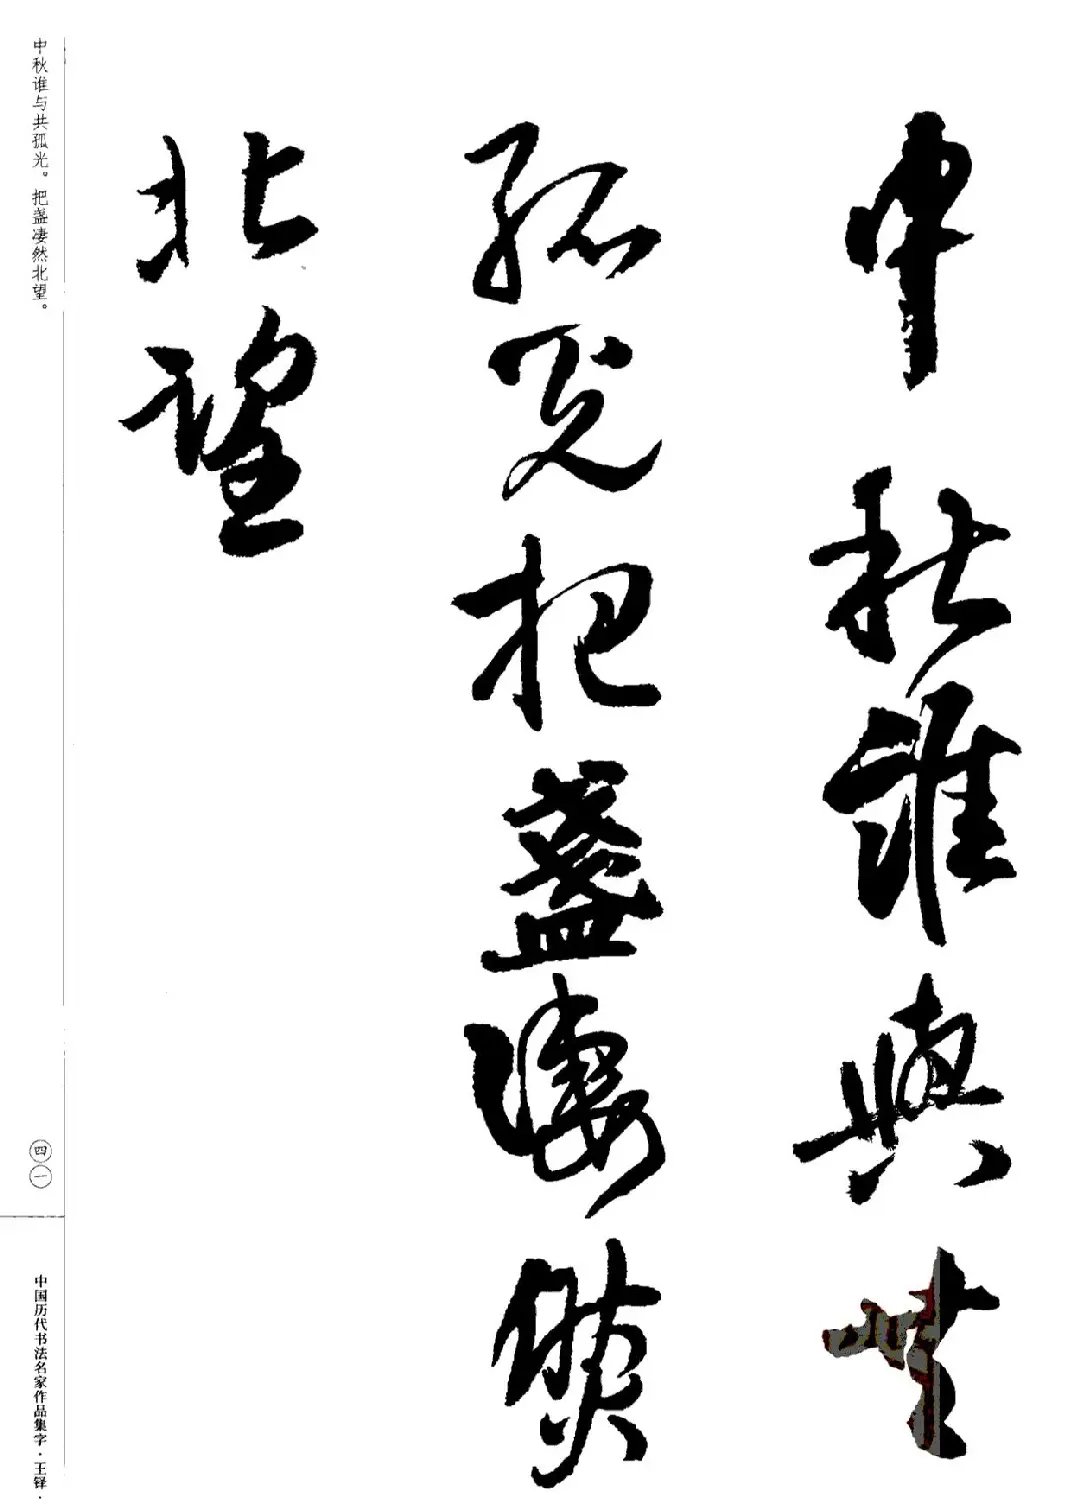 中秋誰與共
孤光把盞凄然
北望
中秋谁与共孤光。把盏凄然北望。
四一
中国历代书法名家作品集字·王铎·